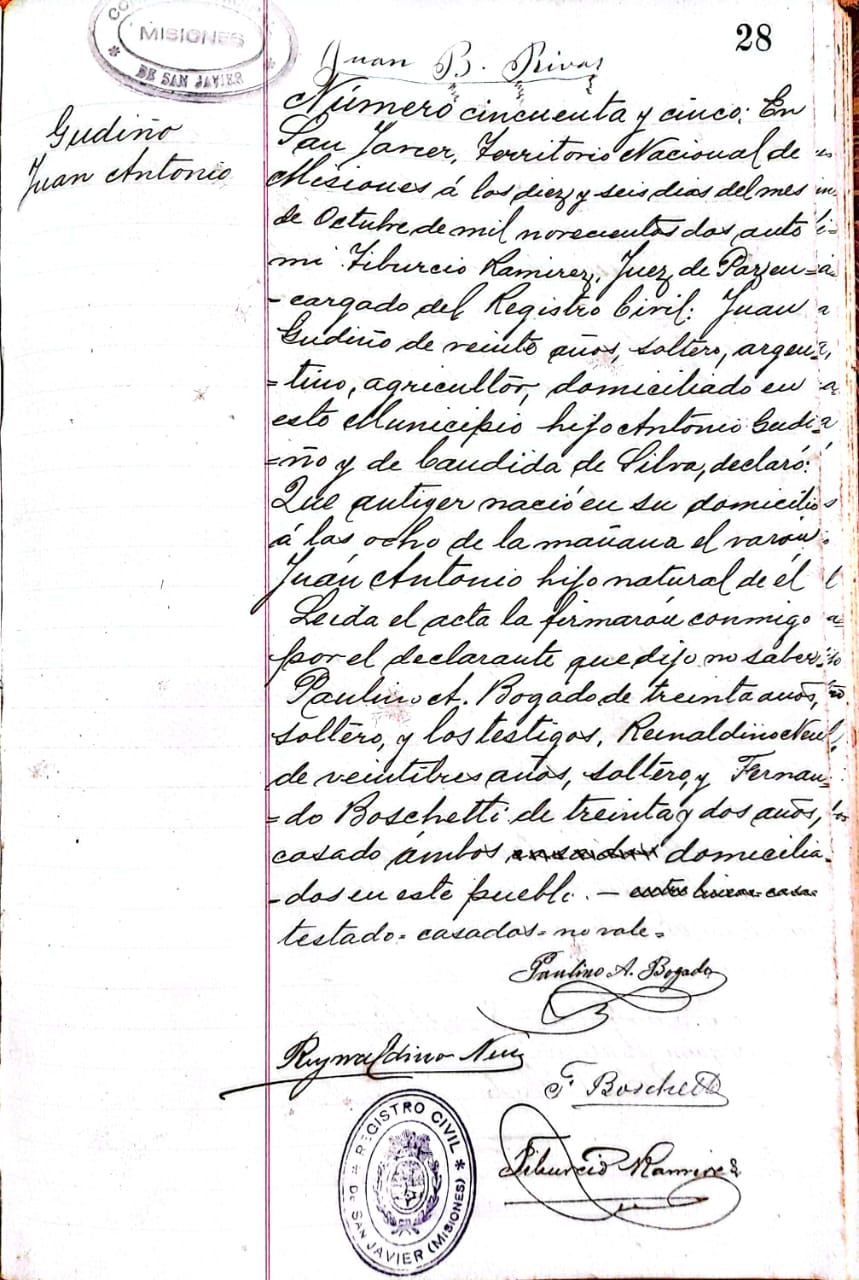 MISIONES
DE SAN JAVIER
28
Juan B. Rivas
Gudiño
Juan Antonio
Número cincuenta y cinco: En
San Javier, Territorio Nacional de
Misiones á los diez y seis dias del mes
de Octubre de mil novecientos dos ante
mi Tiburcio Ramirez, Juez de Paz en=
-cargado del Registro Civil: Juan
Gudiño de veinte años, soltero, argen=
=tino, agricultor, domiciliado en
este Municipio hijo Antonio Gudi=
=ño y de Candida de Silva, declaró:
Que antiyer nació en su domicilio
á las ocho de la mañana el varon
Juan Antonio hijo natural de él
Leida el acta la firmarón conmigo
por el declarante que dijo no saber
Paulino A. Bogado de treinta años,
soltero, y los testigos, Reinaldino
de veintitres años, soltero, y Fernan=
=do Boschetti de treinta y dos años,
casado ámbos domicilia-
-dos en este pueblo. —
testado = casados = no vale =
Paulino A. Bogado
Reynaldino
F Boschetti
Tiburcio Ramirez
* REGISTRO CIVIL *
DE SAN JAVIER (MISIONES)